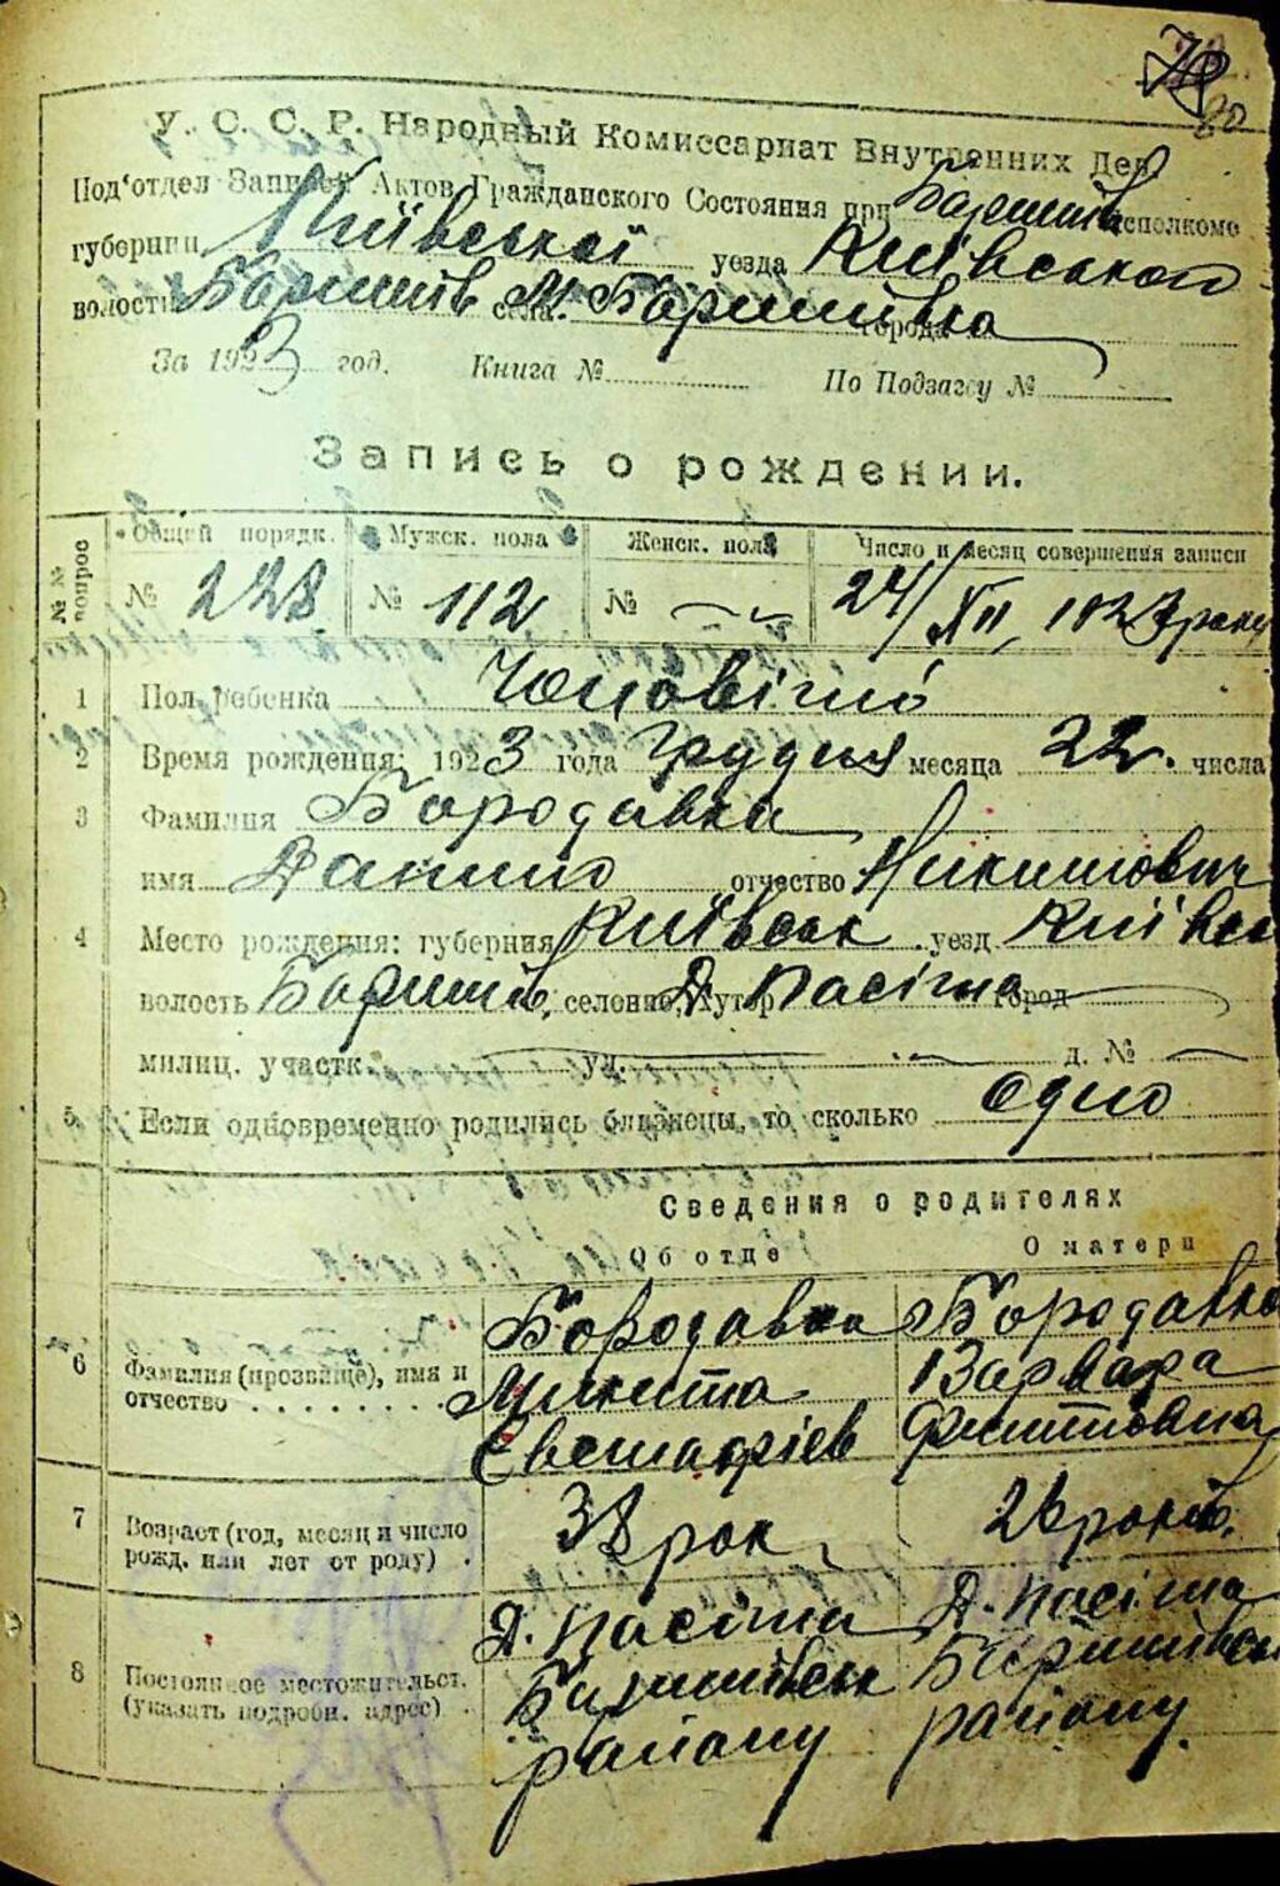 80
У. С. С. Р. Народный Комиссариат Внутренних Дел.
Под'отдел Записей Актов Гражданского Состояния при Баришів исполкоме
губернии Київської уезда Київського
волости Баришів села М. Баришівка города
За 1923 год. Книга № По Подзагсу №
Запись о рождении.
№№ вопрос Общий порядк. Мужск. пола Женск. пола Число и месяц совершения записи
№ 228 № 112 № 24/XII, 1923 року
1 Пол ребенка Чоловічий
2 Время рождения: 1923 года Грудня месяца 22. числа
3 Фамилия Бородавка
имя Данило отчество Никитович
4 Место рождения: губерния Київськ уезд Київсь
волость Баришів, селение, хутор Д. Пасічна город
милиц. участк. ул. д. №
5 Если одновременно родились близнецы, то сколько одно
Сведения о родителях
Об отце О матери
6 Фамилия (прозвище), имя и отчество Бородавка Бородавка
Микита Варвара
Евстафіев
7 Возраст (год, месяц и число рожд. или лет от роду) 38 рок 26 років.
8 Постоянное местожительст. (указать подробн. адрес) Д. Пасічна Д. Пасічна
Баришівськ Баришівськ
району району.